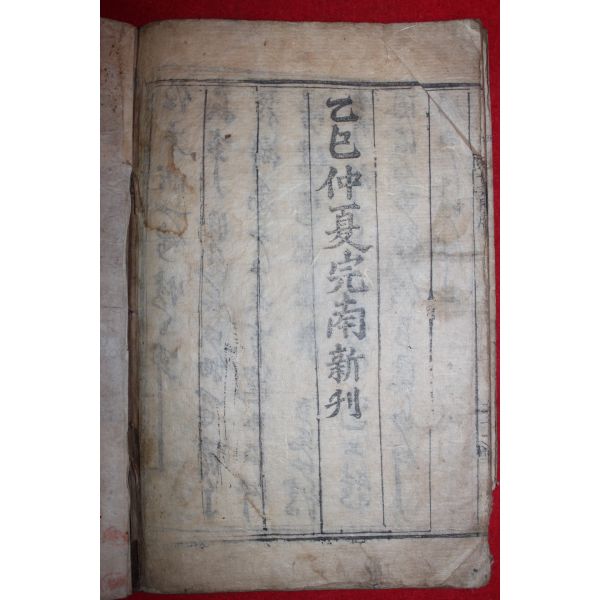 乙巳仲夏完南新刊